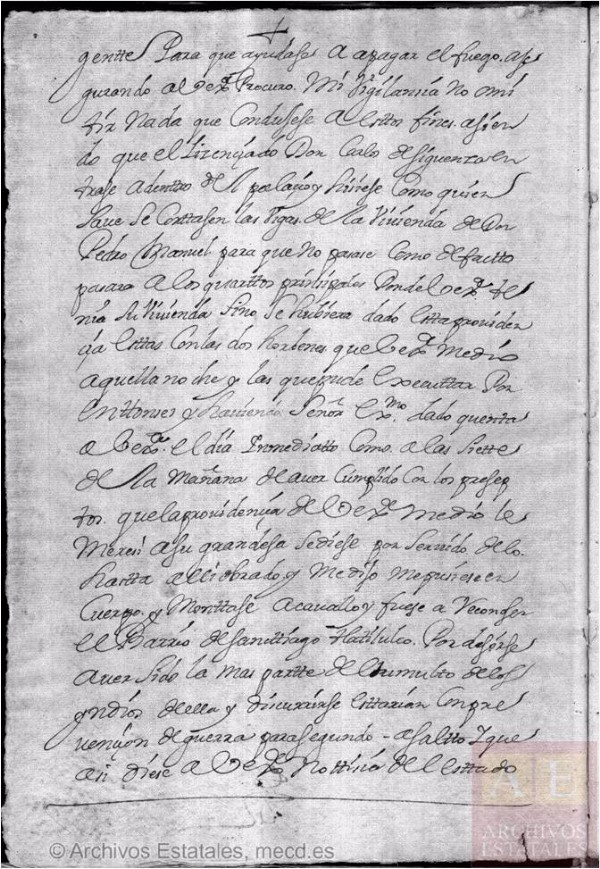 gentte Para que ayudase a apagar el fuego. ase
gurando a Vexª Procuro. Mi Vigilancia No omi
tir Nada que Condusese a esttos fines. asien
do que el Licençiado Don Carlo de siguenza en
trase adentro del palaçio y hiziese Como quien
save se Corttasen las Vigas. de la Vivienda de Don
Pedro Manuel. para que No pasase Como de factto
pasara a los quarttos prinsipales Donde Vexª te
nia su Vivienda sino se hubiera dado estta providen
çia esttas Con las dos hordenes que Vexª Me dio
aquella noche y las que pude Executtar Por
enttonses y haviendo Señor Exmo. dado quenta
a Vexª. el dia Inmediatto Como. a las siette
de la Mañana de aver Cumplido Con los presep
tos. que la providençia de Vexª Me dio le
Mereci a su grandesa se diese por servido de lo.
hastta alli obrado y Me dijo me pusiese en
Cuerpo. y Monttase a cavallo y fuese a Reconoser
el Barrio de santtiago tlatilulco. Por desirse
aver sido la mas partte del tumulto de los
yndios de ella y discurrirse esttarian Con pre
vençion de guerra para segundo asaltto Y que
asi diese a Vexª Nottisia del esttado
© Archivos Estatales, mecd.es
AE
ARCHIVOS
ESTATALES